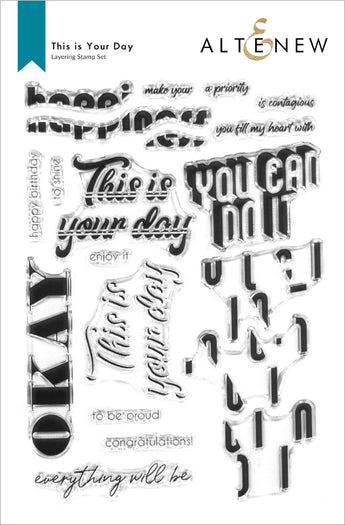 This is Your Day
Layering Stamp Set
ALTENEW
happi
happiness
ness
make your
a priority
is contagious
you fill my heart with
happy birthday
to shine
This is
your day
YOU CAN
DO IT
enjoy it
OKAY
This is
your day
to be proud
congratulations!
everything will be